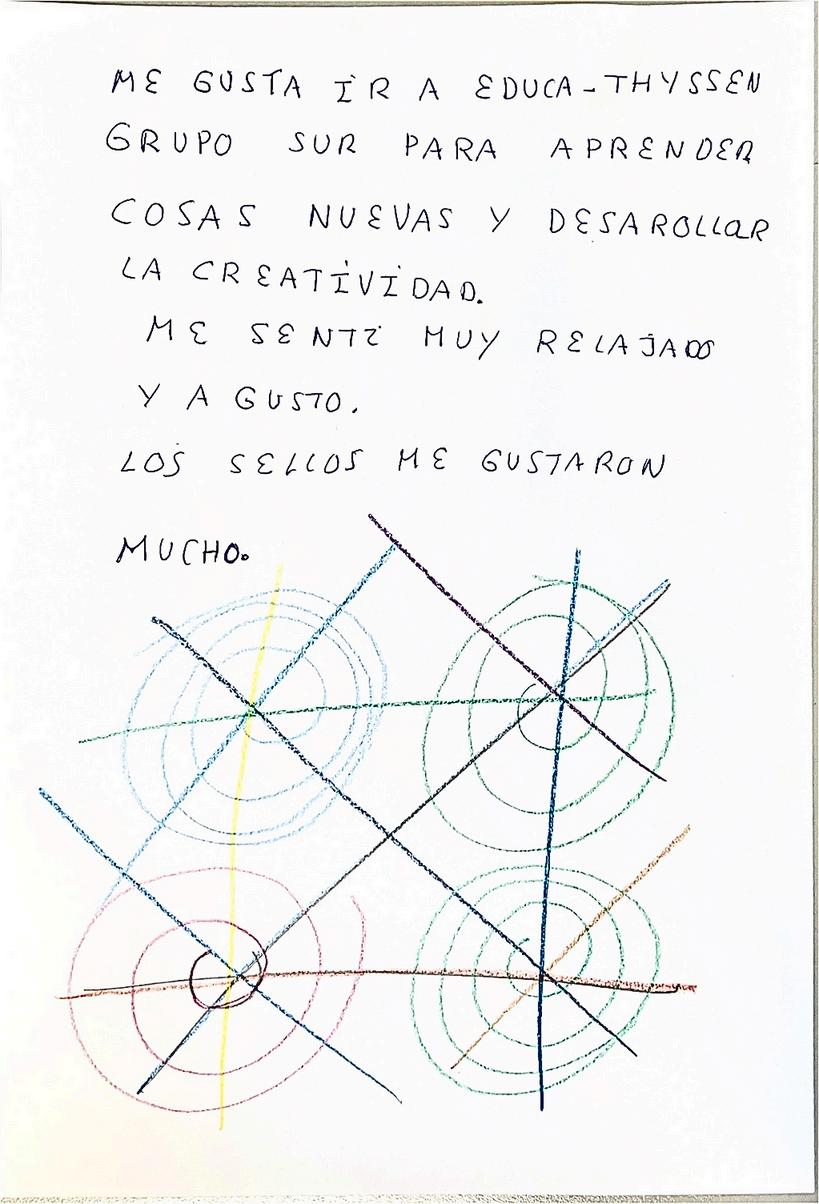 ME GUSTA IR A EDUCA-THYSSEN
GRUPO SUR PARA APRENDER
COSAS NUEVAS Y DESAROLLAR
LA CREATIVIDAD.
ME SENTI MUY RELAJADO
Y A GUSTO.
LOS SELLOS ME GUSTARON
MUCHO.